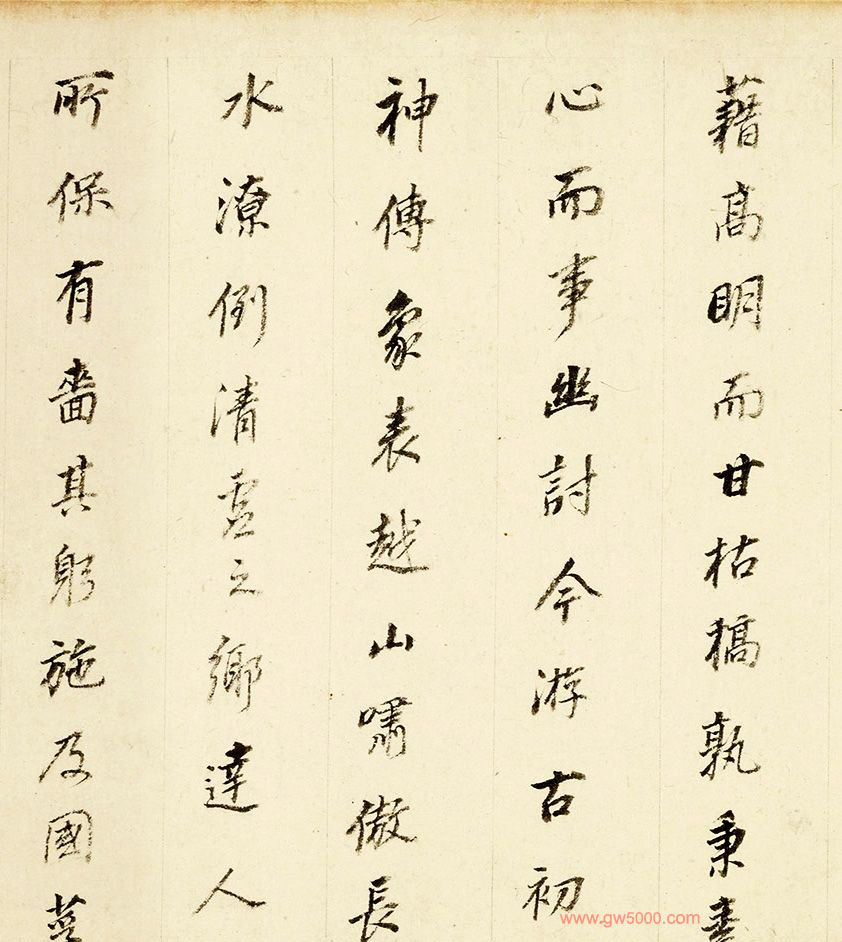 藉高明而甘枯槁孰秉
心而事幽討今游古初
神傳象表越山嘯傲長
水潦倒清虛之鄉達人
所保有嗇其躬施及國
www.gw5000.com